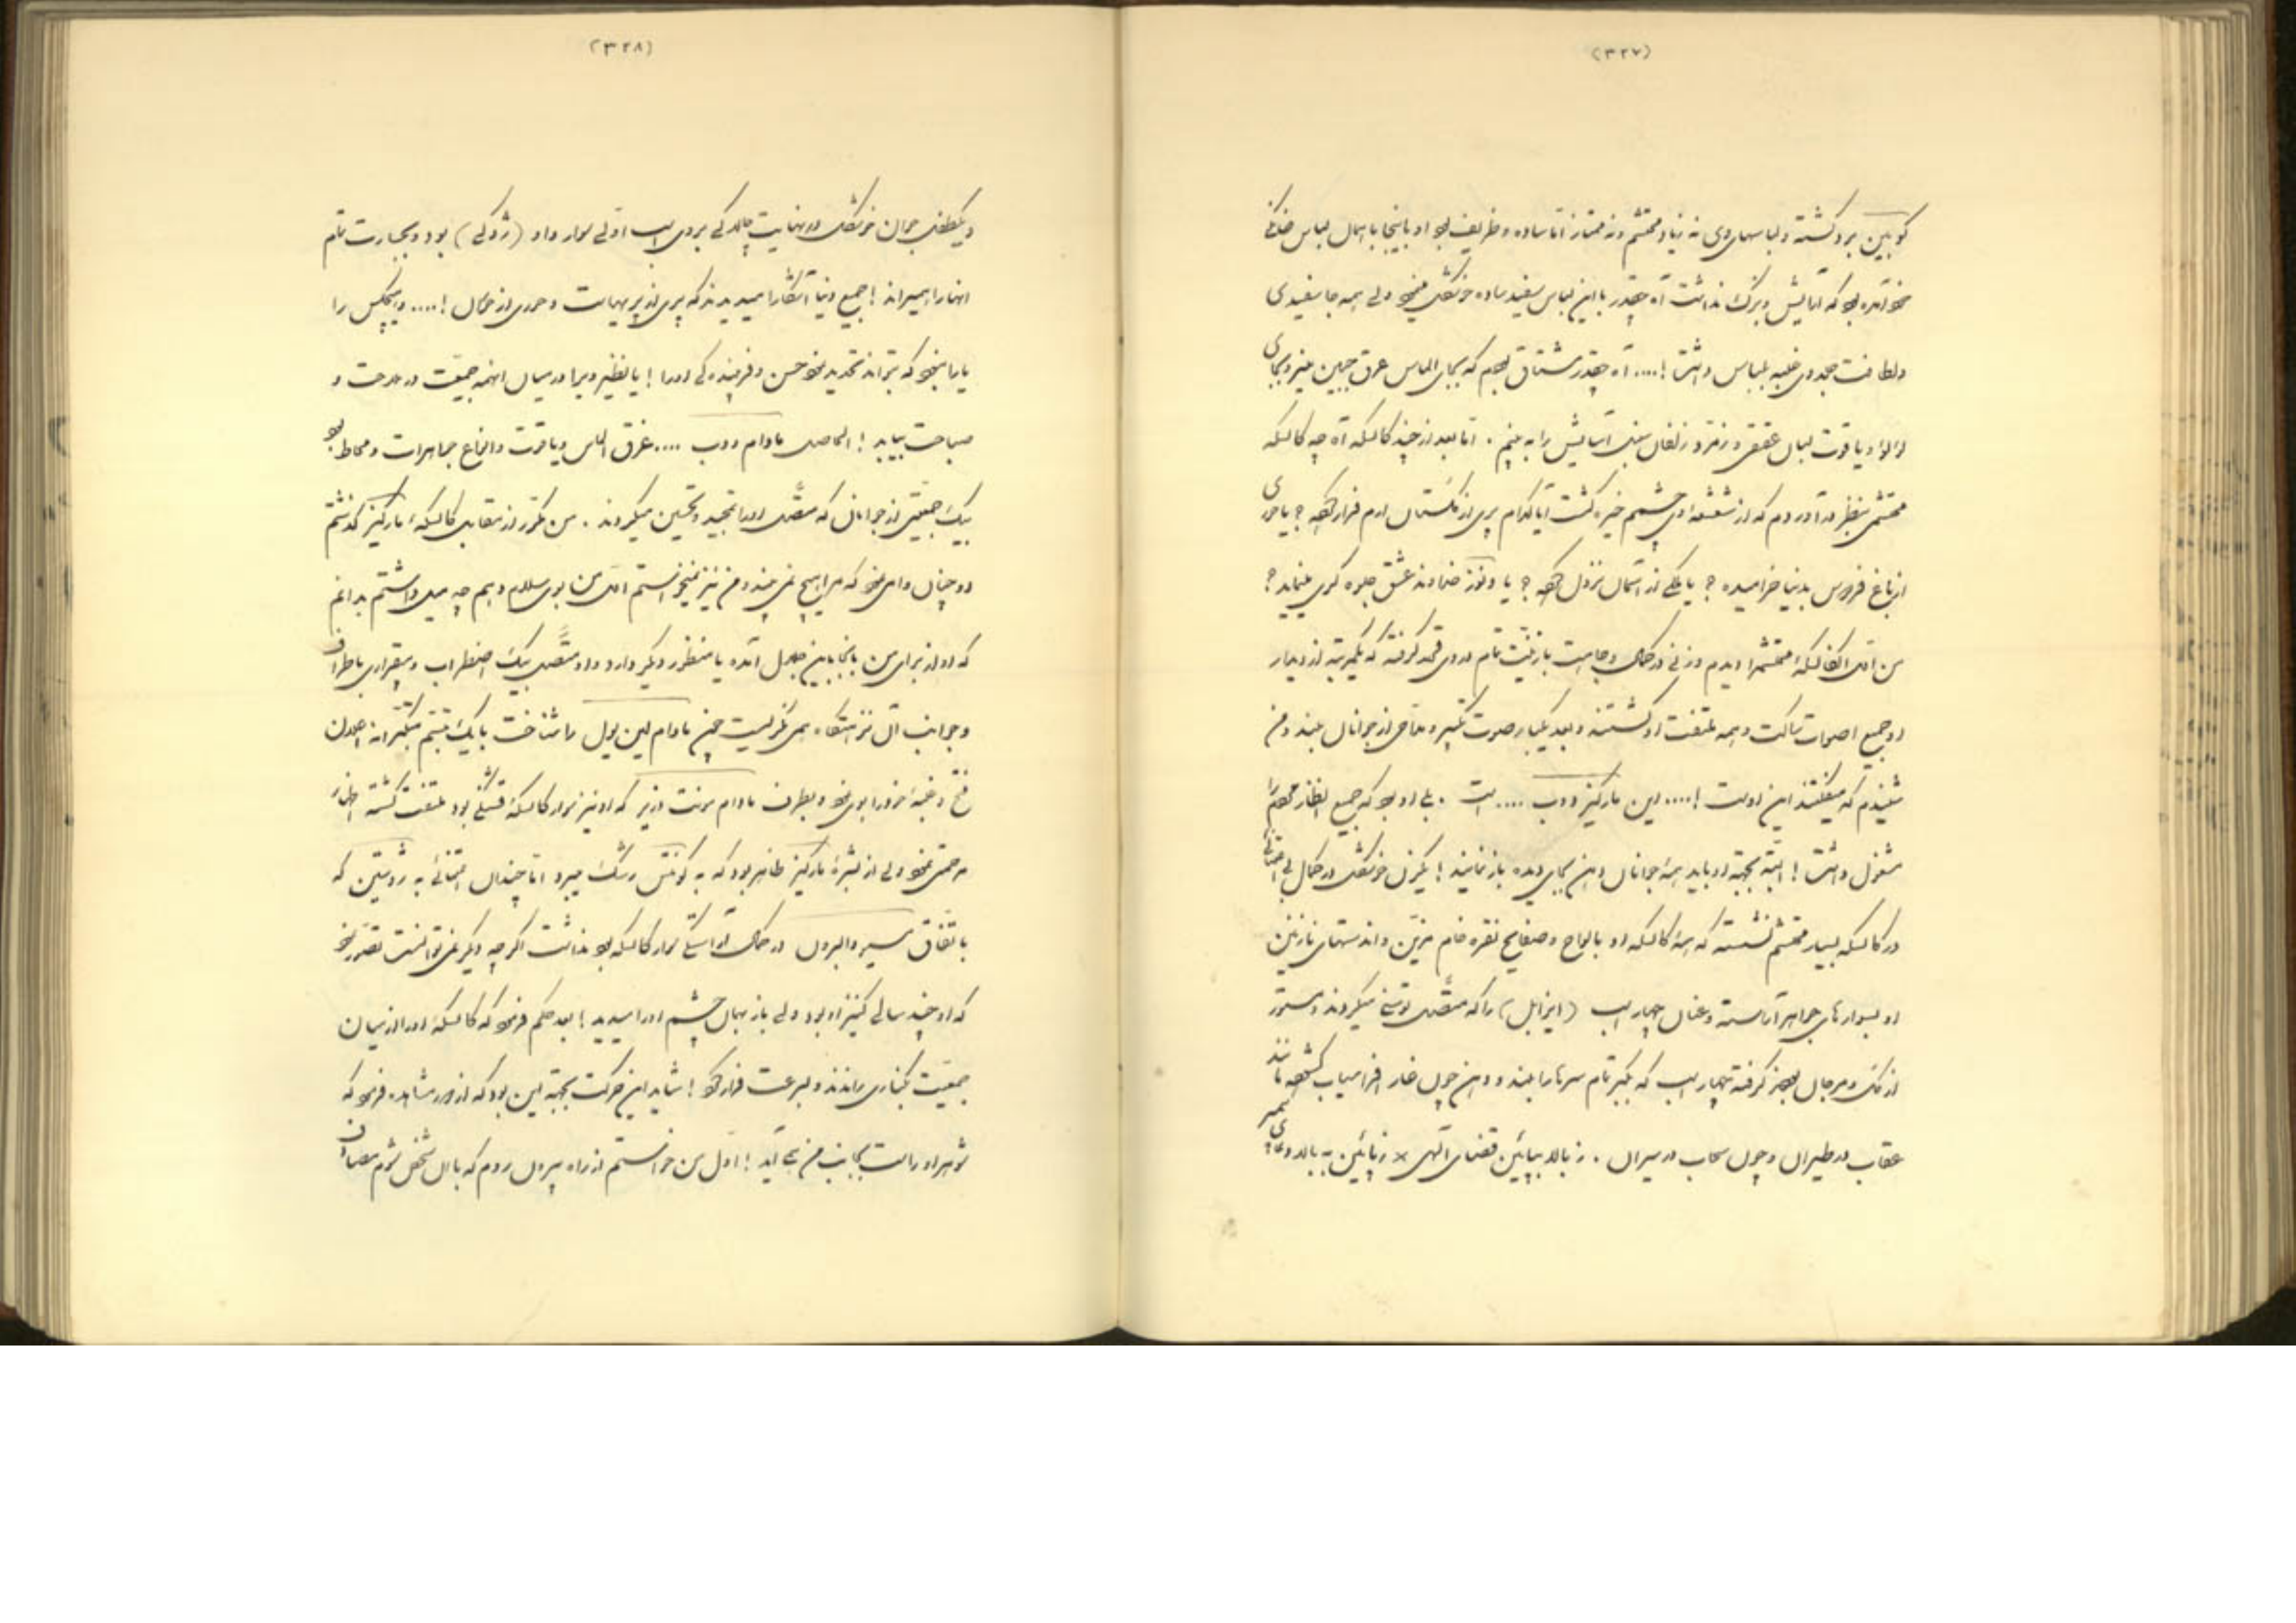 (۳۲۷)
گوبلین برو گشته و لباسهای وی نه زیاد محتشم و نه ممتاز اما ساده و ظریف بود او باینجا با همان لباس خانگی
خود آمده بود که آرایش و بزک نداشت آه چقدر با این لباس سفید ساده خوشگل مینمود ولی همه جا سفیدی
و لطافت جلد وی غلبه بلباس داشت !.... آه چقدر مشتاق بودم که بجای الماس عرق جبین عنبر و بجای
لؤلؤ و یاقوت لبان عقیق و زمرد زلفان سنبل آسایش را به بینم . اما بعد از چند کالسکه آه چه کالسکه
محتشمی بنظر در آوردم که از شعشعه وی چشمم خیره گشت آیا کدام پری از گلستان ارم فرار کرده ؟ یا حوری
از باغ فردوس بدنیا خرامیده ؟ یا ملکی از آسمان نزول کرده ؟ یا ونوز خداوند عشق جلوه گری مینماید ؟
من آن کالسکهٔ محتشم را دیدم و زنی در کمال وجاهت با زینت تمام در وی قعود گرفته که یکمرتبه از دیدار
او جمیع اصوات ساکت و همه ملتفت او گشتند و بعد یکبار صوت تکبیر و مداحی از جوانان بلند و من
شنیدم که میگفتند این اوست !.... این مارکیز دوب .... است . بلی او بود که جمیع انظار مردم را
مشغول داشت ! البته بجهة او باید همهٔ جوانان دهن بجای دیده باز نمایند ! یکزن خوشگل در کمال بی اعتنائی
در کالسکه بسیار محتشم نشسته که همهٔ کالسکه او با الواح و صفایح نقره خام مزین و اند دستهای نازنین
او بسوارهای جواهر آراسته و عنان چهار اسب (ایزابل) را که متصل توسنی میکردند و دستور
از ملک و مرجان بوز گرفته چهار اسب که بکبر تمام سرها را بلند و دهن چون غار افراسیاب گشوده مانند
عقاب در طیران و چون سحاب در سیران . ز بالا بپائین قضای الهی × ز پائین به بالا دعای
(۳۲۸)
و یکطفل جوان خوشگل در نهایت چالاکی بروی اسب اولی سوار و او (ژوکی) بود و بجسارت تمام
آنها را میراند ! جمیع دنیا آشکارا میدیدند که پری از پریهاست و حوری از خیال !.... و هیچکس را
یارا نبود که بتواند تحدید نمود حسن و فریبنده کی او را ! یا نظیر ویرا در میان اینهمه جمعیت در ملاحت و
صباحت بیابد ! الحاصل مادام دوب .... غرق الماس و یاقوت و انواع جواهرات و محاط بود
بیک جمعیتی از جوانان که متصل او را تمجید و تحسین میکردند . من مکرر از مقابل کالسکهٔ مارکیز گذشتم
او چنان وامی نمود که مرا هیچ نمی بیند و من نیز نمیخواستم اول من بوی سلام دهم چه میل داشتم بدانم
که او از برای من باینجا باین جلال آمده یا منظور دیگر دارد و او متصل بیک اضطراب و بیقراری باطراف
و جوانب آن نزهتگاه همی نگریست چون مادام لین یول را شناخت با یک تبسم متکبرانه اعلان
فتح و غلبهٔ خود را بوی نمود و بطرف مادام سرنت وزیر که او نیز سوار کالسکهٔ قشنگی بود ملتفت گشته اظهار
مرحمتی نمود ولی از بشرهٔ مارکیز ظاهر بود که به کونتس رشک میبرد اما چندان اعتنائی به ژوستین که
باتفاق سیر والبرول در کمال آراستگی سوار کالسکه بود نداشت اگر چه دیگر نمی توانست تصور نمود
که او چند سالی کنیز او بود ولی باز بهمان چشم او را میدید ! بعد حکم فرمود که کالسکهٔ او را از میان
جمعیت بکناری راندند و بسرعت فرار کرد ! شاید این حرکت بجهة این بود که از دور مشاهده فرمود که
شوهر او راست بجانب من می آید ! اول من خواستم از راه بیرون روم که با آن شخص شوم مصادف